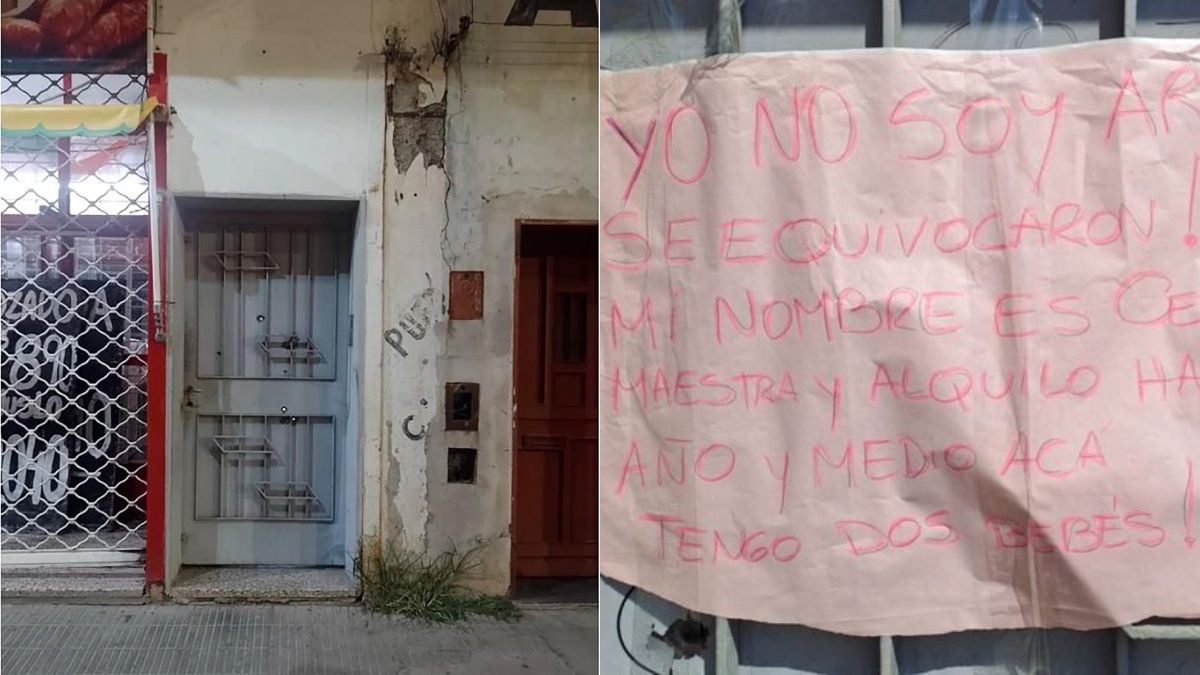 PUT
C.
YO NO SOY AR
SE EQUIVOCARON!
MI NOMBRE ES CE
MAESTRA Y ALQUILO HA
AÑO Y MEDIO ACÁ
TENGO DOS BEBÉS!